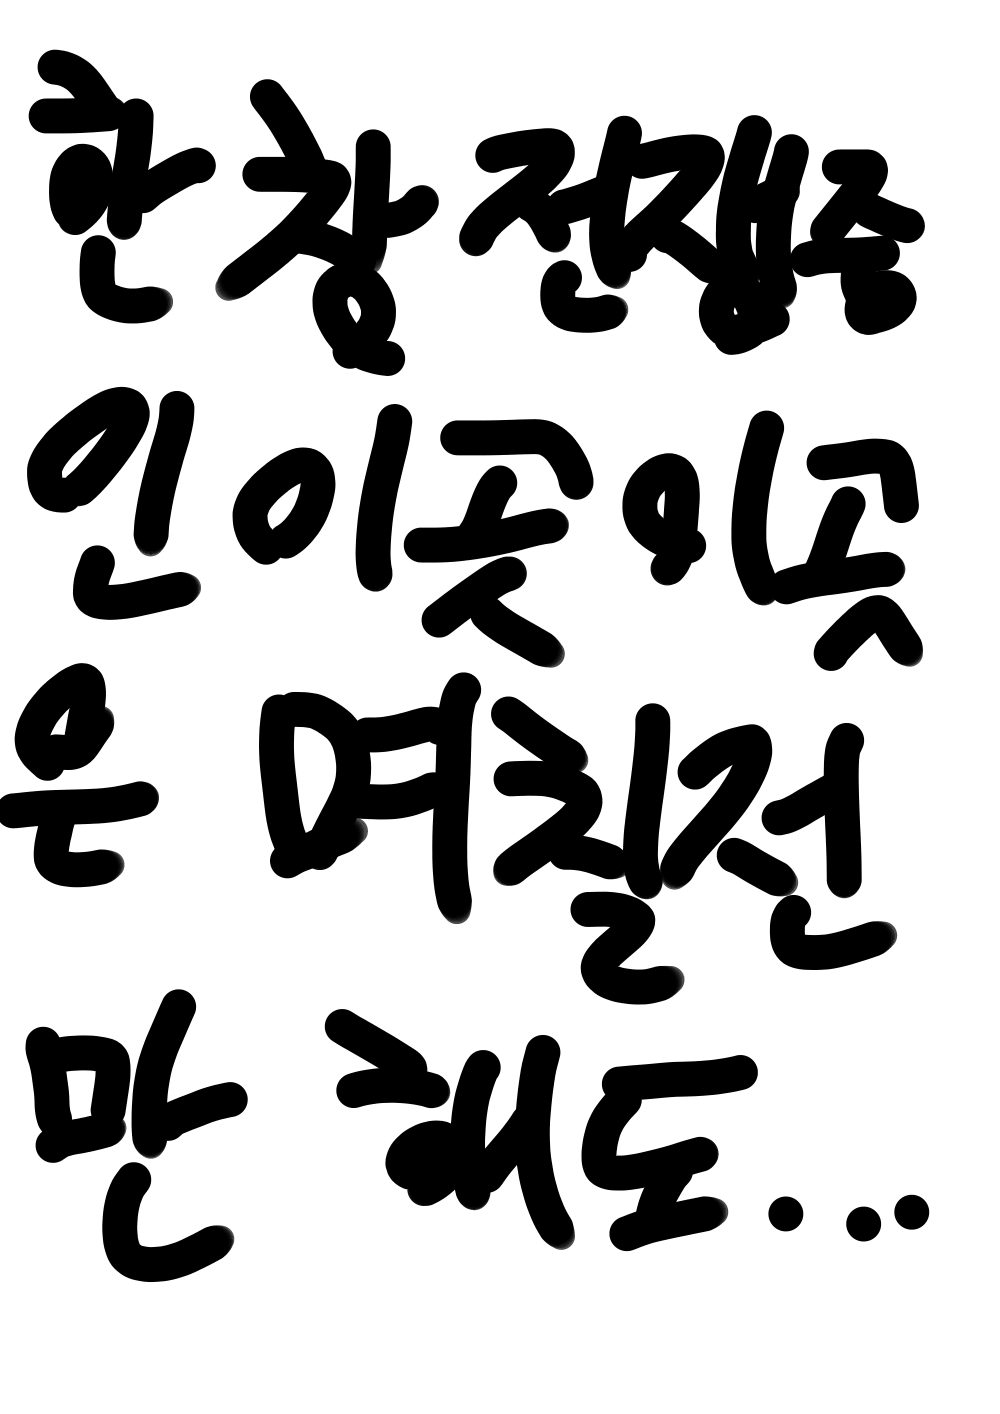 한창 전쟁중
인 이곳 이곳
은 며칠전
만 해도...